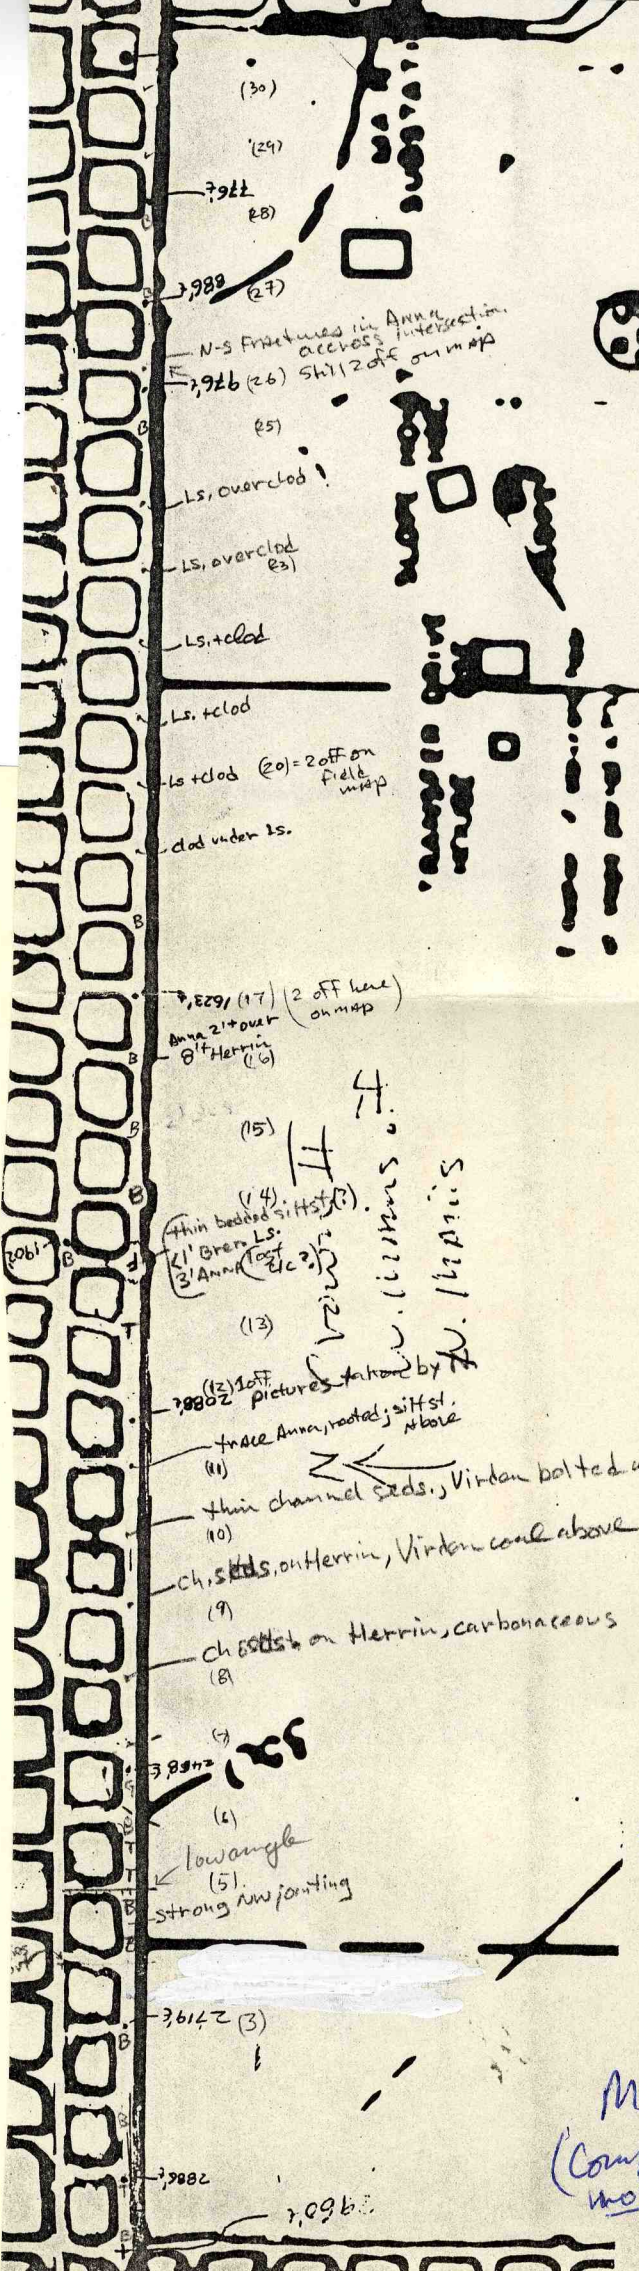 (30)
(29)
776'±
(28)
888'± (27)
N-S Fractures in Anna
accross intersection
976'± (26) Still 2 off on map
(25)
Ls, overclod
Ls, overclod
(23)
Ls. + clod
Ls. + clod
Ls + clod (20) = 2 off on
field
map
clod under Ls.
1623'± (17) (2 off here
on map)
Anna 2'+ over
8'+ Herrin
(16)
(15)
II
(14)
thin bedded siltst. (?)
<1' Brer. Ls.
3' Anna
1902
(13)
(12) 1 off
2088'± Pictures taken by
trace Anna, rooted; siltst.
above
(11)
N
thin channel seds., Virden bolted
(10)
Ch. seds. on Herrin, Virden coal above
(9)
on Herrin, carbonaceous
(8)
(7)
2458'±
(6)
low angle
(5)
strong NW jointing
2719'± (3)
2886'±
2960'±
M
(Com
mo
B
B
B
B
B
B
B
B
B
T
T
T
B
B
B
B